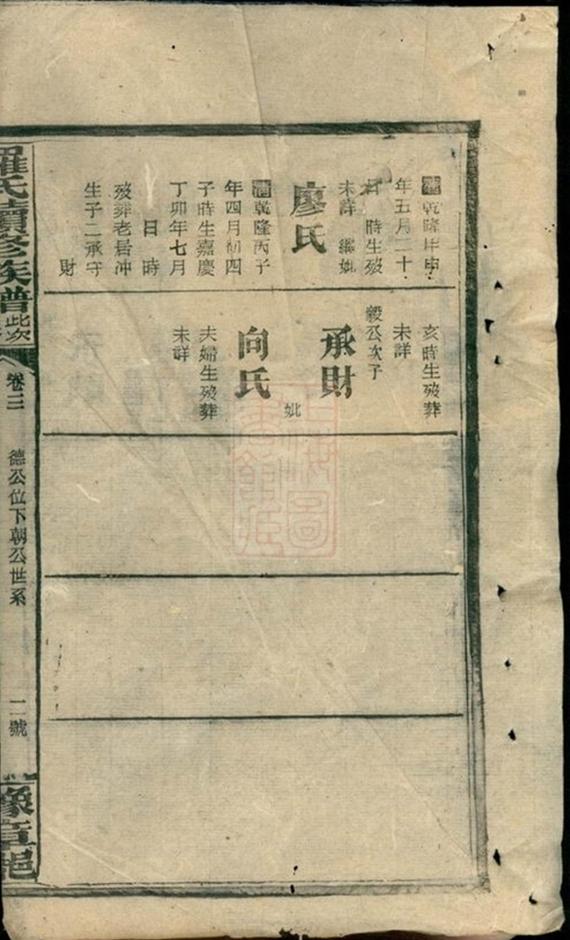 清乾隆甲申
年五月二十
時生歿
未詳 繼妣
廖氏
清乾隆丙子
年四月初四
子時生嘉慶
丁卯年七月
日時
歿葬老居冲
生子二承守
財
亥時生歿葬
未詳
毅公次子
承財
妣
向氏
夫婦生歿葬
未詳
羅氏續修族譜
此次
卷三
德公位下朝公世系
二號
豫章